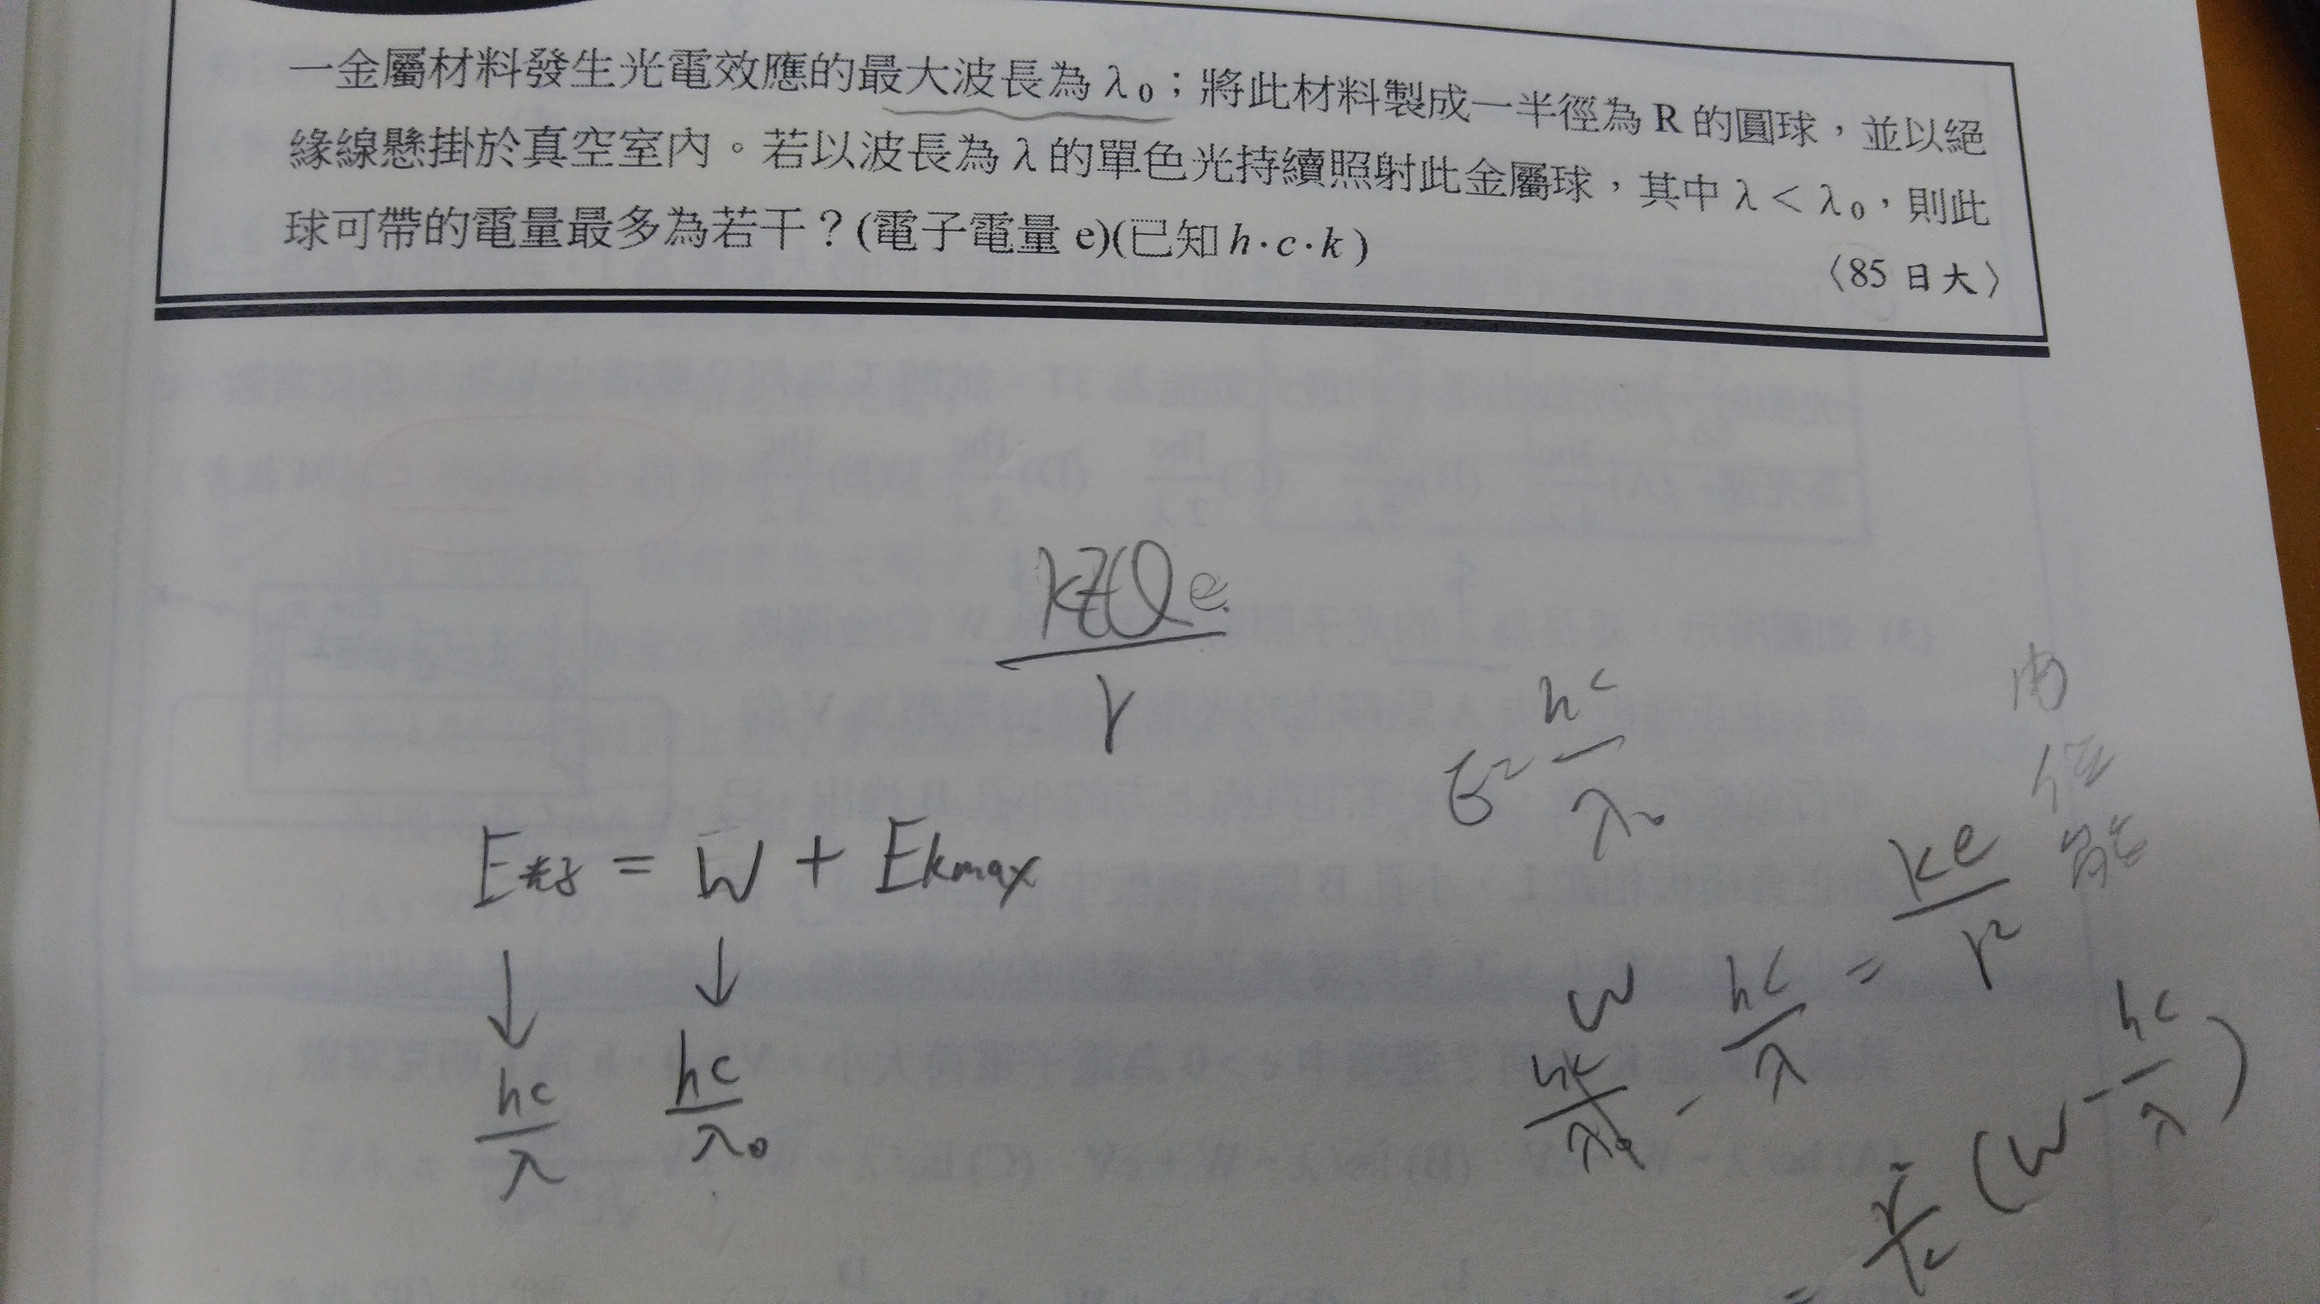 一金屬材料發生光電效應的最大波長為 λ₀；將此材料製成一半徑為 R 的圓球，並以絕
緣線懸掛於真空室內。若以波長為 λ 的單色光持續照射此金屬球，其中 λ < λ₀，則此
球可帶的電量最多為若干？(電子電量 e)(已知 h·c·k)
〈85 日大〉
Qe
r
E = hc
λ₀
內
位
能
E光子 = W + Ekmax
ke
r²
W
hc/λ₀ - hc/λ =
hc/λ
hc/λ₀
(W - hc/λ)